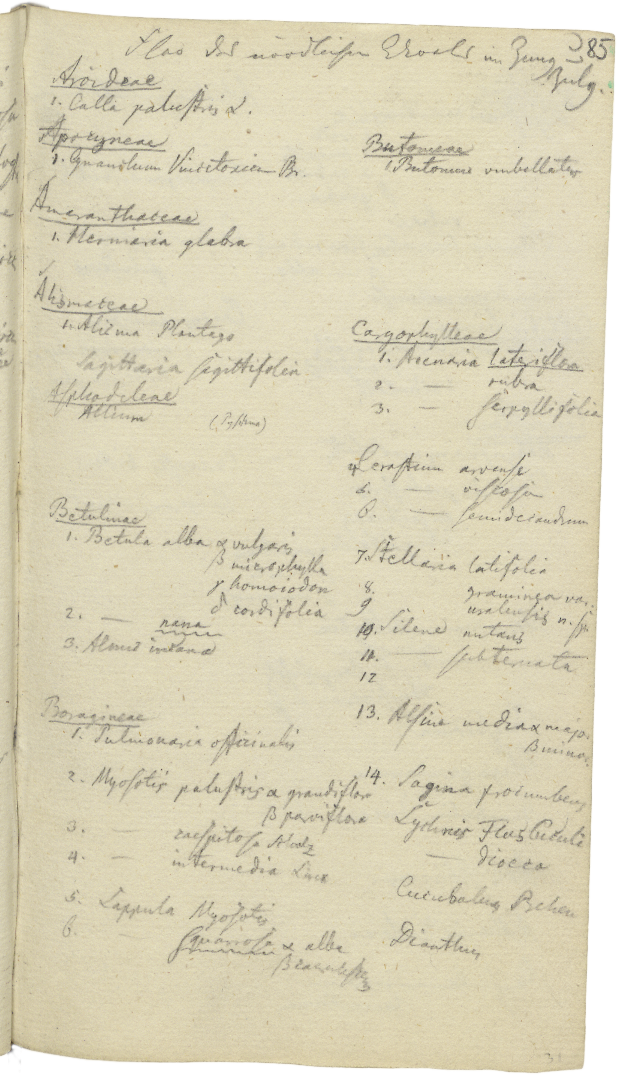 85
Flor des nördlichen Urals im Juny
July.
Aroideae
1. Calla palustris α.
Apocyneae
1. Cynanchum Vincetoxicum Br.
Amaranthaceae
1. Herniaria glabra
Alismaceae
1. Alisma Plantago
Sagittaria sagittifolia
Asphodeleae
Allium
Betulinae
1. Betula alba α vulgaris
β microphylla
γ homoiodon
δ cordifolia
2. — nana
3. Alnus incana
Boragineae
1. Pulmonaria officinalis
2. Myosotis palustris α grandiflora
β parviflora
3. — caespitosa
4. — intermedia Link
5. Lappula Myosotis
6. squarrosa α alba
β
Butomeae
1. Butomus umbellatus
Caryophylleae
1. Arenaria lateriflora
2. — rubra
3. — serpyllifolia
4. Cerastium arvense
5. — viscosum
6. — semidecandrum
7. Stellaria latifolia
8. graminea var.
9 uralensis n. sp
10. Silene nutans
11. —
12
13. Alsine media α major
β minor
14. Sagina procumbens
Lychnis Flos Cuculi
— dioeca
Cucubalus Behen
Dianthus